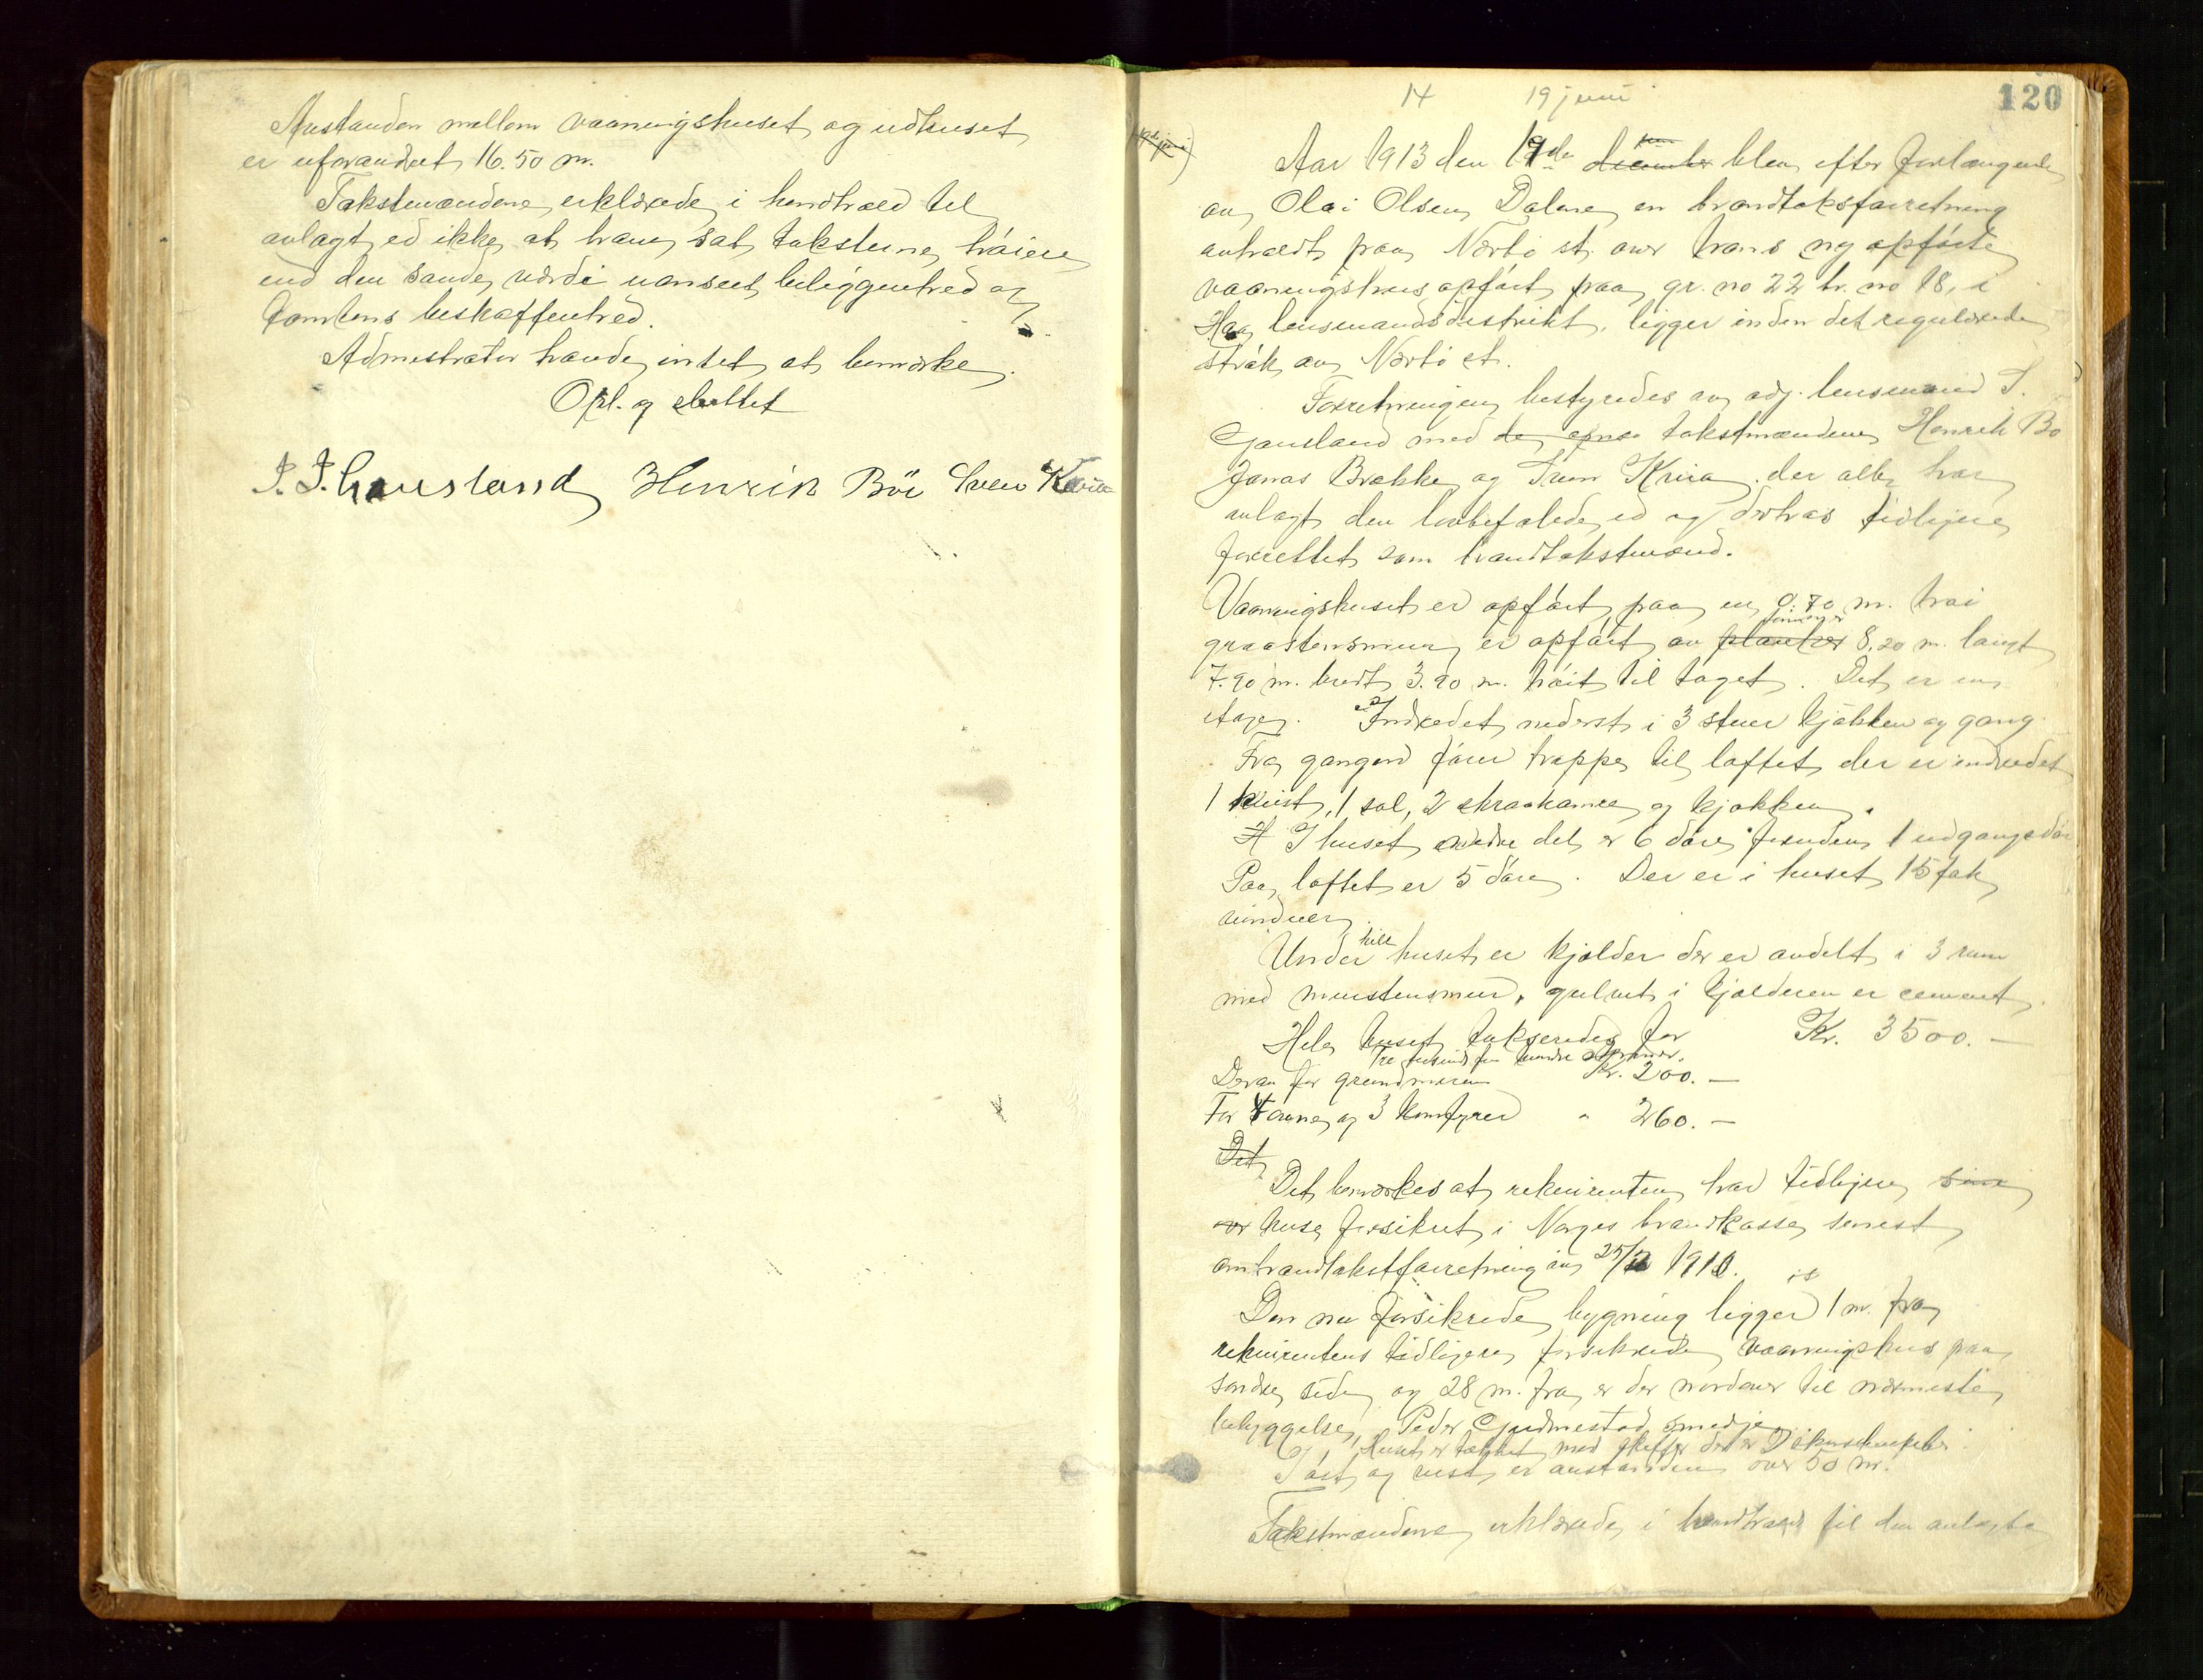 Avstanden mellem vaaningshuset og udhuset
er uforandret 16.50 m.
Takstmændene erklærede i henhold til
avlagt ed ikke at have sat taksterne høiere
end den sande værdi uanseet beliggenhed og
tomtens beskaffenhed.
Admistrator havde intet at bemærke.
Opl. og sluttet
Henrik Böe Sven Kvia
120
14 19 juni
Aar 1913 den 19de december blev efter forlangende
av Olai Olsen Dalane en brandtaksforretning
avholdt paa Nærbø st. over hans ny opførte
vaaningshus opført paa gr. no 22 br. no 18, i
Haa lensmandsdistrikt, ligger inden det regulerede
strøk av Nærbø st.
Forretningen bestyredes av adj. lensmand T.
Gausland med de opnæ takstmændene Henrik Bø
Jonas Brække og Sven Kvia, der alle har
avlagt den lovbefalede ed og derhas tidligere
forrettet som brandtakstmænd.
Vaaningshuset er opført paa en 0.70 m. høi
graastensmur, er opført av planker 8.20 m. langt
7.90 m. bredt 3.90 m. høit til taget. Det er en
etage. Indredet nederst i 3 stuer kjøkken og gang
Fra gangen fører trappe til loftet der er indredet
1 kvist, 1 sal, 2 skraakamre og kjøkken.
H I huset nedre del er 6 døre foruden 1 udgangsdør
Paa loftet er 5 døre. Der er i huset 15 fak
vinduer.
Under hele huset er kjelder der er avdelt i 3 rum
med murstensmur, gulvet i kjelderen er cement.
Hele huset takseredes for Kr. 3500.—
Tre tusind fem hundre kroner.
Derav for grundmuren Kr. 200.—
For 4 ovne og 3 komfyrer " 260.—
Det
Det bemærkes at rekvirenten har tidligere sine
huse forsikret i Norges brandkasse senest
om brandtakstforretning av 25/11 1910.
Den nu forsikrede bygning ligger 1 m. fra
rekvirentens tidligere forsikrede vaaningshus paa
søndre side og 28 m. fra er der nordover til nærmeste
bebyggelse, Peder Gudmestad smedje.
Huset er tækket med skiffer
I øst og vest er avstanden over 50 m.
Takstmændene erklærede i henhold til den avlagte